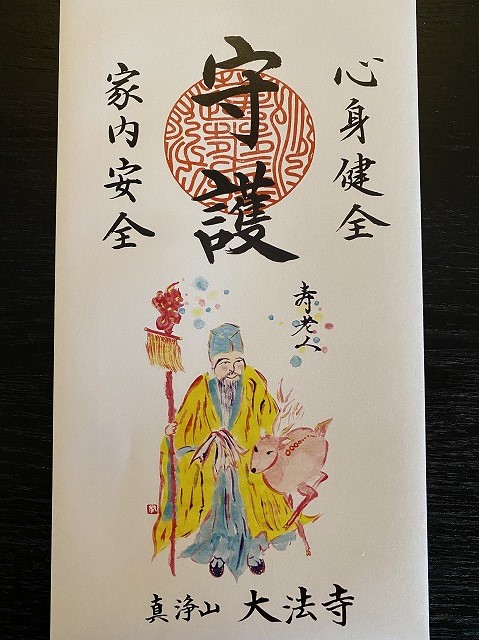 心身健全
守護
家内安全
寿老人
真浄山 大法寺